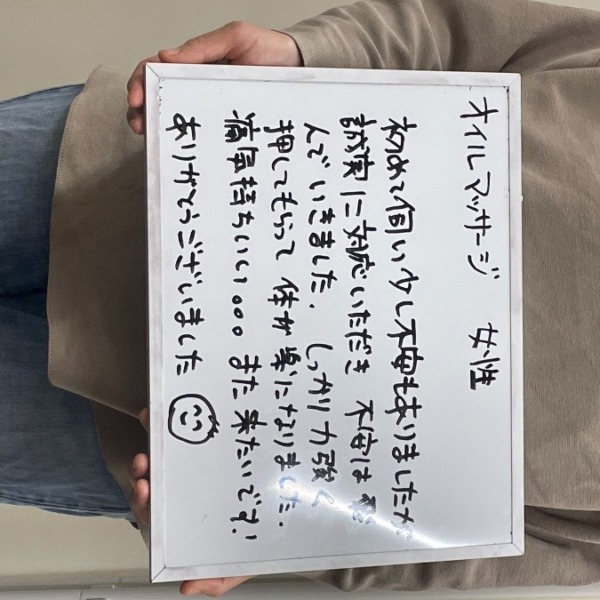 オイルマッサージ 女性
初めて伺い少し不安もありましたが
誠実に対応いただき 不安は飛
んでいきました. しっかり力強く
押してもらって 体が楽になりました.
痛気持ちいい。。。また来たいです!
ありがとうございました